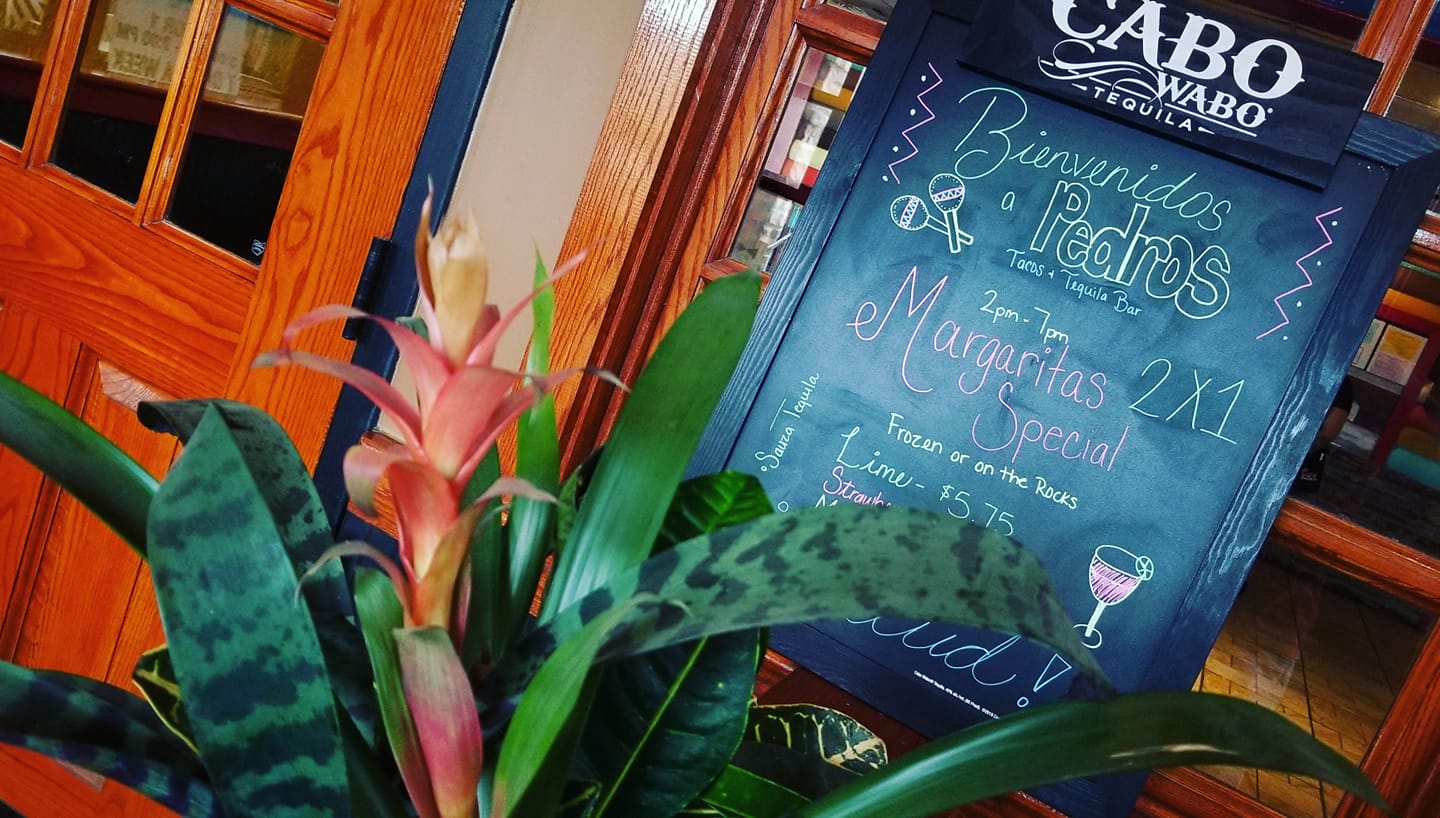 CABO
WABO
TEQUILA
Bienvenidos
a Pedros
Tacos + Tequila Bar
2pm-7pm
Margaritas 2X1
Special
Frozen or on the Rocks
Lime - $5.75
Sauza Tequila